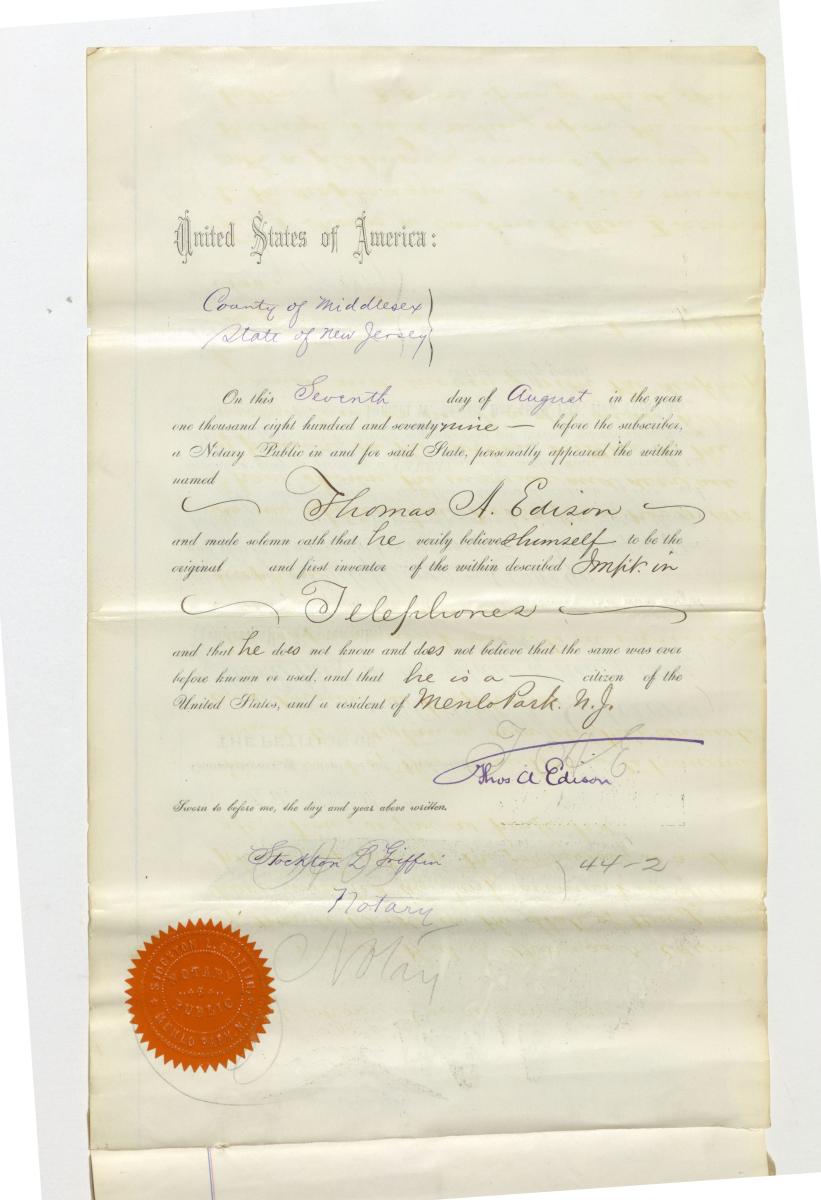 United States of America:
County of Middlesex
State of New Jersey
On this Seventh day of August in the year
one thousand eight hundred and seventy nine — before the subscriber,
a Notary Public in and for said State, personally appeared the within
named
Thomas A. Edison
and made solemn oath that he verily believes himself to be the
original and first inventor of the within described Impt. in
Telephones
and that he does not know and does not believe that the same was ever
before known or used, and that he is a — citizen of the
United States, and a resident of Menlo Park. N.J.
T A E
Thos A Edison
Sworn to before me, the day and year above written.
Stockton L Griffin
44-2
Notary
Notary
STOCKTON L. GRIFFIN
NOTARY
PUBLIC
MENLO PARK, N.J.